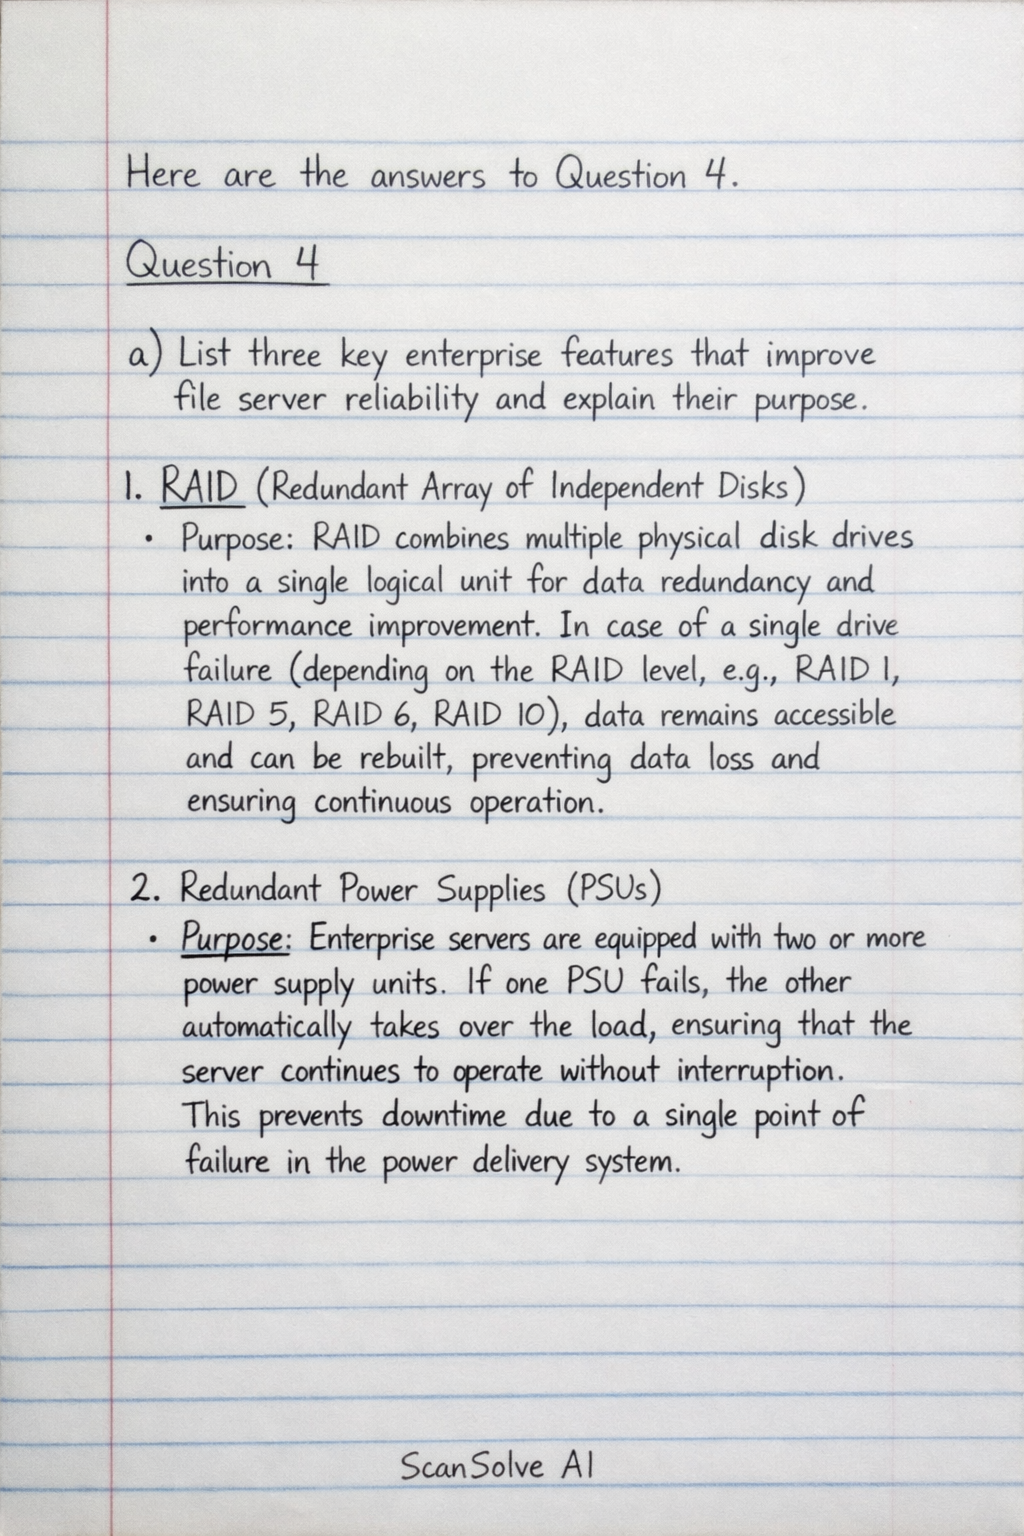 Here are the answers to Question 4.
Question 4
a) List three key enterprise features that improve
file server reliability and explain their purpose.
1. RAID (Redundant Array of Independent Disks)
• Purpose: RAID combines multiple physical disk drives
into a single logical unit for data redundancy and
performance improvement. In case of a single drive
failure (depending on the RAID level, e.g., RAID 1,
RAID 5, RAID 6, RAID 10), data remains accessible
and can be rebuilt, preventing data loss and
ensuring continuous operation.
2. Redundant Power Supplies (PSUs)
• Purpose: Enterprise servers are equipped with two or more
power supply units. If one PSU fails, the other
automatically takes over the load, ensuring that the
server continues to operate without interruption.
This prevents downtime due to a single point of
failure in the power delivery system.
ScanSolve AI